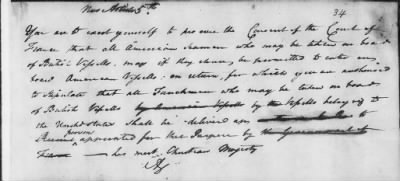 New Article 5th
34
You are to exert yourself to procure the Consent of the Court of
France that all American Seamen who may be taken on board
of British Vessels may if they chuse, be permitted to enter on
board American Vessels. In return, for which you are authorised
to stipulate that all Frenchmen who may be taken on board
of British Vessels by American Vessels by the Vessels belonging to
the United States shall be delivered up to
Persons appointed for that Purpose by the Government of
France his most Christian Majesty